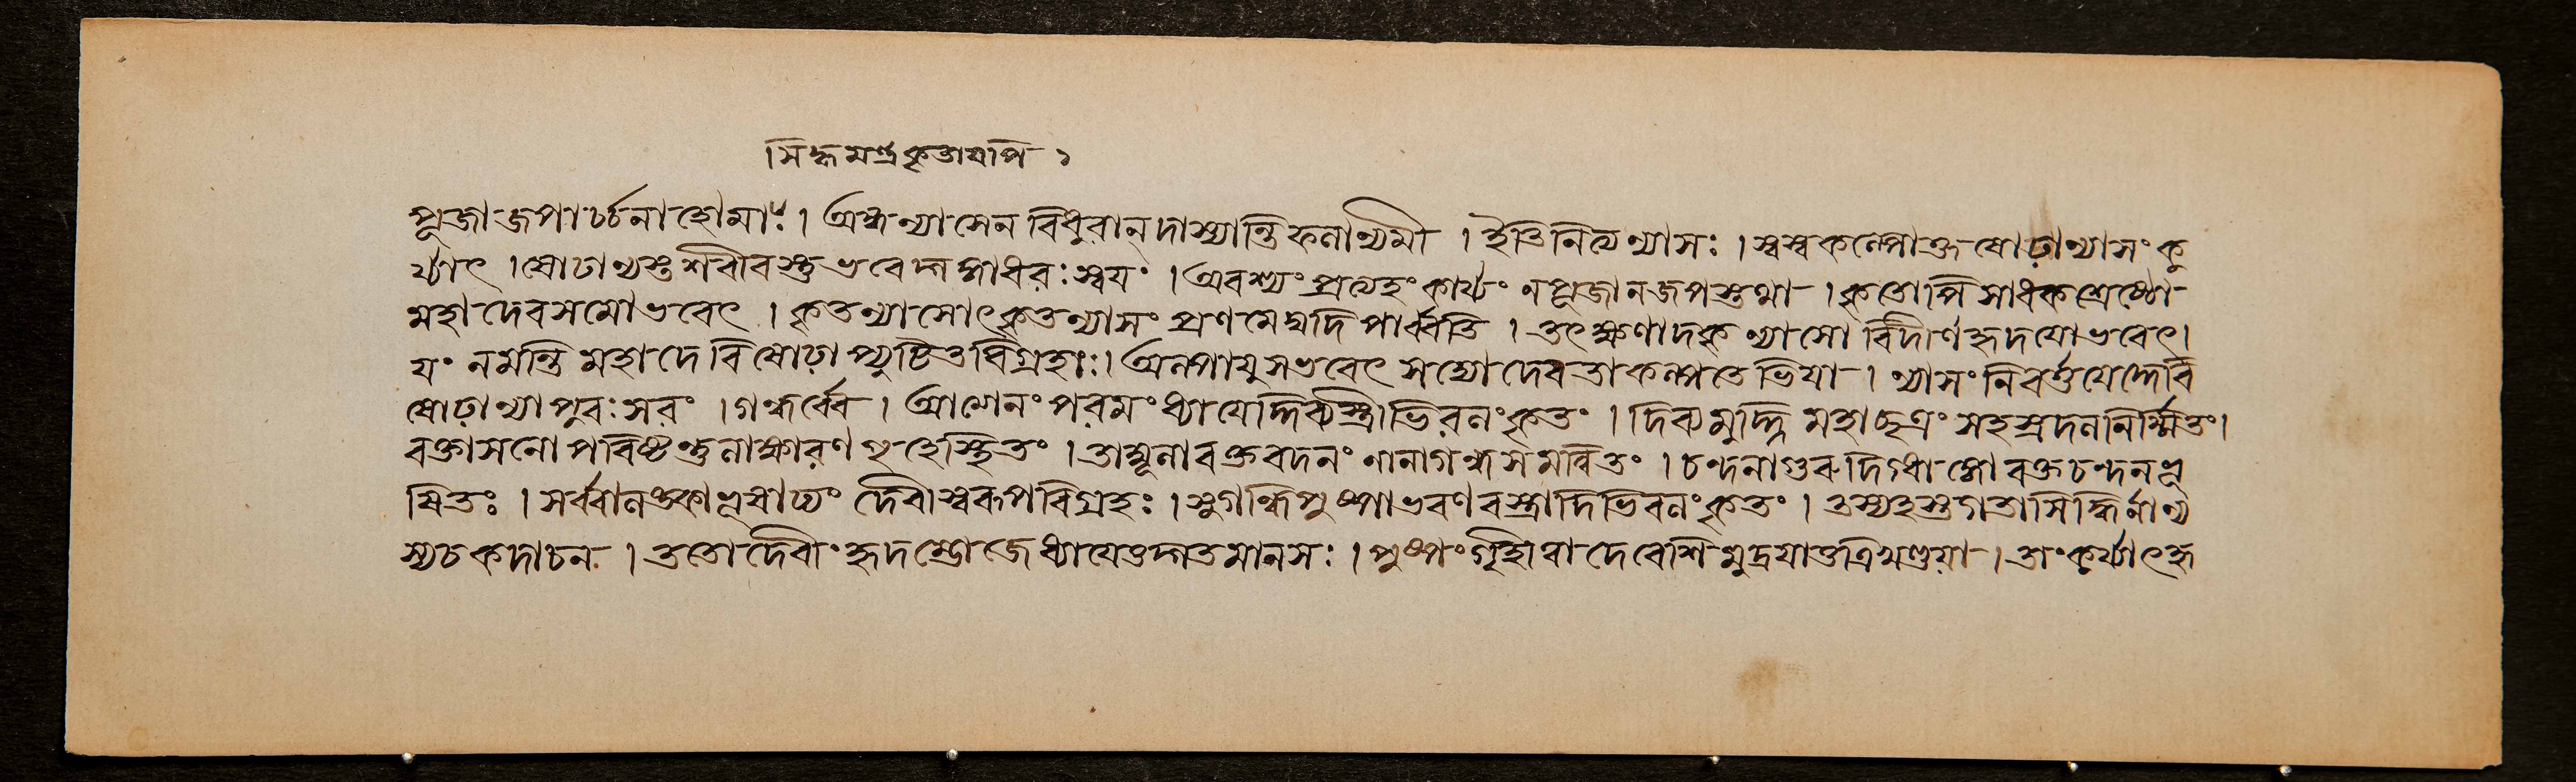 সিদ্ধমন্ত্রকৃতাযপি ১
পূজাজপার্চ্চনাহোমাঃ। অঙ্গন্যাসেন বিধুরান্ দাস্যান্তি ফলান্যমী । ইতি নিত্যন্যাসঃ । স্বস্বকল্পোক্ত ষোঢ়ান্যাসং কু
র্য্যাৎ । ষোঢান্যস্তশরীরস্তু ভবেদ্গঙ্গাধরঃ স্বযং । অবশ্যং প্রত্যহং কার্য্যং ন পূজা ন জপস্তথা । কৃতোপি সাধকশ্রেষ্ঠো
মহাদেবসমো ভবেৎ । কৃতন্যাসোৎকৃতন্যাসং প্রণমেদ্যদি পার্ব্বতি । তৎক্ষণাদকৃ ন্যাসো বিদীর্ণহৃদযো ভবেৎ।
যং নমন্তি মহাদেবি ষোঢ়া প্যুটিতবিগ্রহাঃ। অল্পাযু স ভবেৎ সদ্যো দেবতা কল্পতে ভিযা । ন্যাসং নিবর্ত্তযেদ্দেবি
ষোঢ়ান্যা পুরঃসরং । গন্ধর্ব্বেব । আগেনং পরমং ধ্যাযেদ্দিব্যস্ত্রীভিরলংকৃতং । দিব্যমুদ্ধ্নি মহাছত্রং সহস্রদলনির্ম্মিতং।
রক্তাসনোপবিষ্টন্তু লাক্ষারণ গৃহে স্থিতং । তাম্বূলারক্তবদনং নানাগন্ধসমন্বিতং । চন্দনাগুরুদিগ্ধাঙ্গো রক্তচন্দনভূ
ষিতঃ । সর্ব্বালঙ্কারভূষাঢ্যং দেবীস্বরূপবিগ্রহঃ । সুগন্ধিপুষ্পাভরণবস্ত্রাদিভিরলংকৃতং । তস্য হস্তগতা সিদ্ধির্নান্য
স্য চ কদাচন । ততো দেবীং হৃদম্ভোজে ধ্যাযেত্তদ্গতমানসঃ । পুষ্পং গৃহীত্বা দেবেশি মুদ্রযাতত্রিখণ্ডযা । তাং কুর্য্যাৎ হৃ